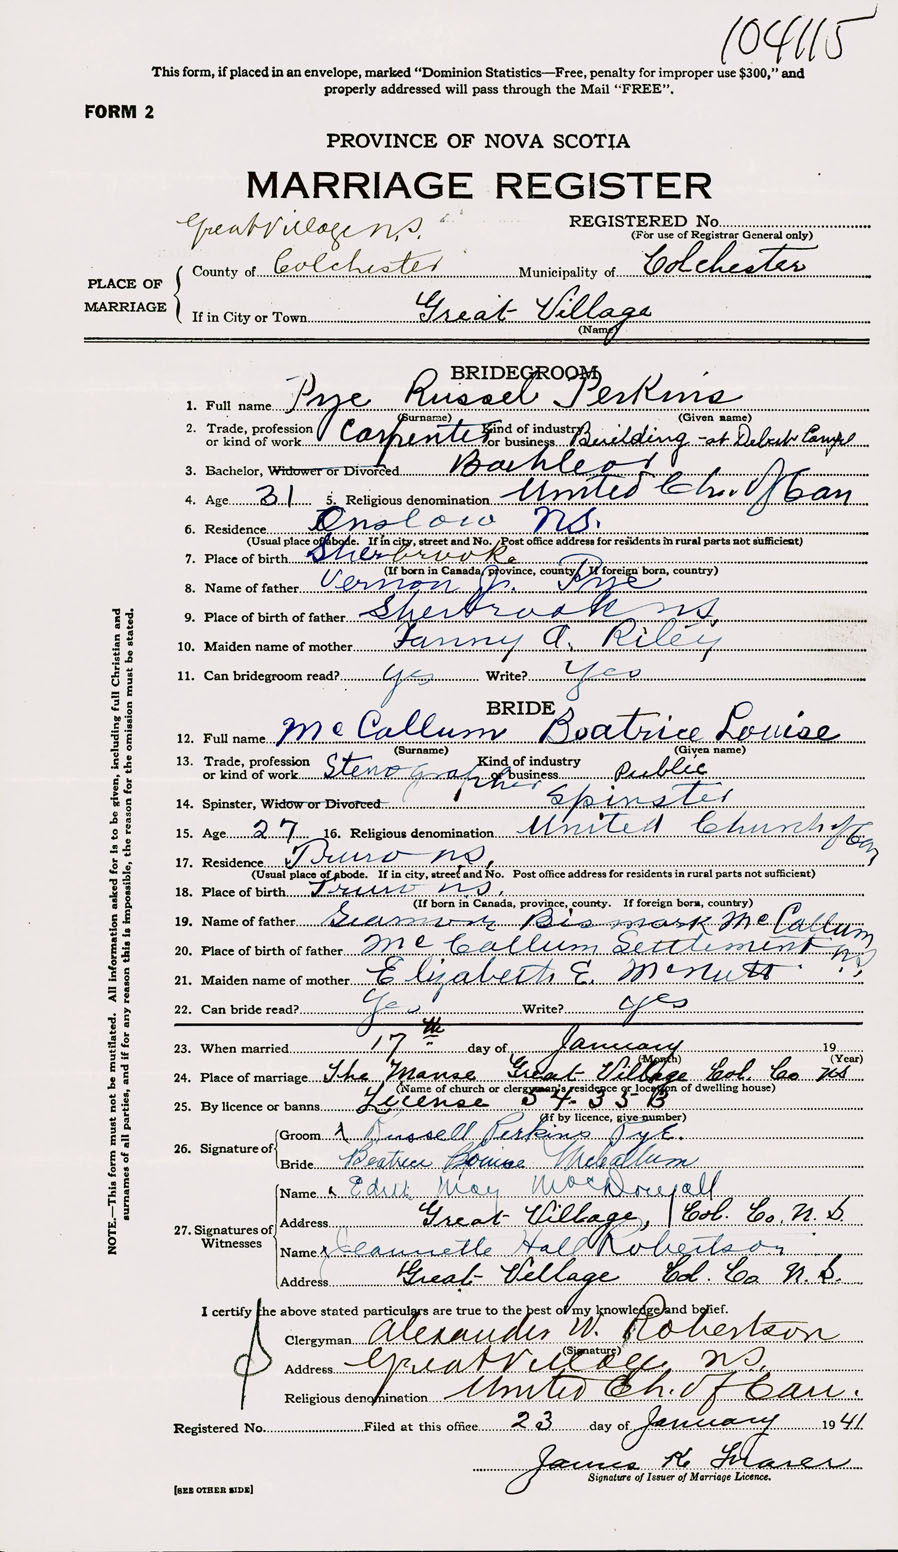 104115
This form, if placed in an envelope, marked "Dominion Statistics—Free, penalty for improper use $300," and
properly addressed will pass through the Mail "FREE".
FORM 2
PROVINCE OF NOVA SCOTIA
MARRIAGE REGISTER
Great Village N.S.
REGISTERED No.
(For use of Registrar General only)
PLACE OF MARRIAGE
County of Colchester Municipality of Colchester
If in City or Town Great Village
(Name)
BRIDEGROOM
1. Full name Pye Russel Perkins
(Surname) (Given name)
2. Trade, profession or kind of work Carpenter Kind of industry or business Building - at Debert Camp
3. Bachelor, Widower or Divorced Bachleor
4. Age 31 5. Religious denomination United Ch. of Can
6. Residence Onslow N.S.
(Usual place of abode. If in city, street and No. Post office address for residents in rural parts not sufficient)
7. Place of birth Sherbrooke
(If born in Canada, province, county. If foreign born, country)
8. Name of father Vernon J. Pye
9. Place of birth of father Sherbrook N.S.
10. Maiden name of mother Fanny A. Riley
11. Can bridegroom read? Yes Write? Yes
BRIDE
12. Full name McCallum Beatrice Louise
(Surname) (Given name)
13. Trade, profession or kind of work Stenographer Kind of industry or business Public
14. Spinster, Widow or Divorced Spinster
15. Age 27 16. Religious denomination United Church of Can
17. Residence Truro N.S.
(Usual place of abode. If in city, street and No. Post office address for residents in rural parts not sufficient)
18. Place of birth Truro N.S.
(If born in Canada, province, county. If foreign born, country)
19. Name of father Bismark McCallum
20. Place of birth of father McCallum Settlement N.S.
21. Maiden name of mother Elizabeth E. McNutt
22. Can bride read? Yes Write? yes
23. When married 17th day of January 19
(Month) (Year)
24. Place of marriage The Manse Great Village Col. Co NS
(Name of church or clergyman's residence or location of dwelling house)
25. By licence or banns License 5433-B
(If by licence, give number)
26. Signature of
Groom X Russell Perkins Pye.
Bride Beatrice Louise McCallum
27. Signatures of Witnesses
Name x Edith May MacDougall
Address Great Village, Col. Co. N.S.
Name x Jeannette Hall Robertson
Address Great Village Col. Co N.S.
I certify the above stated particulars are true to the best of my knowledge and belief.
Clergyman Alexander W. Robertson
(Signature)
Address Great Village, N.S.
Religious denomination United Ch. of Can.
Registered No. Filed at this office 23 day of January 1941
James K Fraser
Signature of Issuer of Marriage Licence.
[SEE OTHER SIDE]
NOTE.—This form must not be mutilated. All information asked for is to be given, including full Christian and
surnames of all parties, and if for any reason this is impossible, the reason for the omission must be stated.